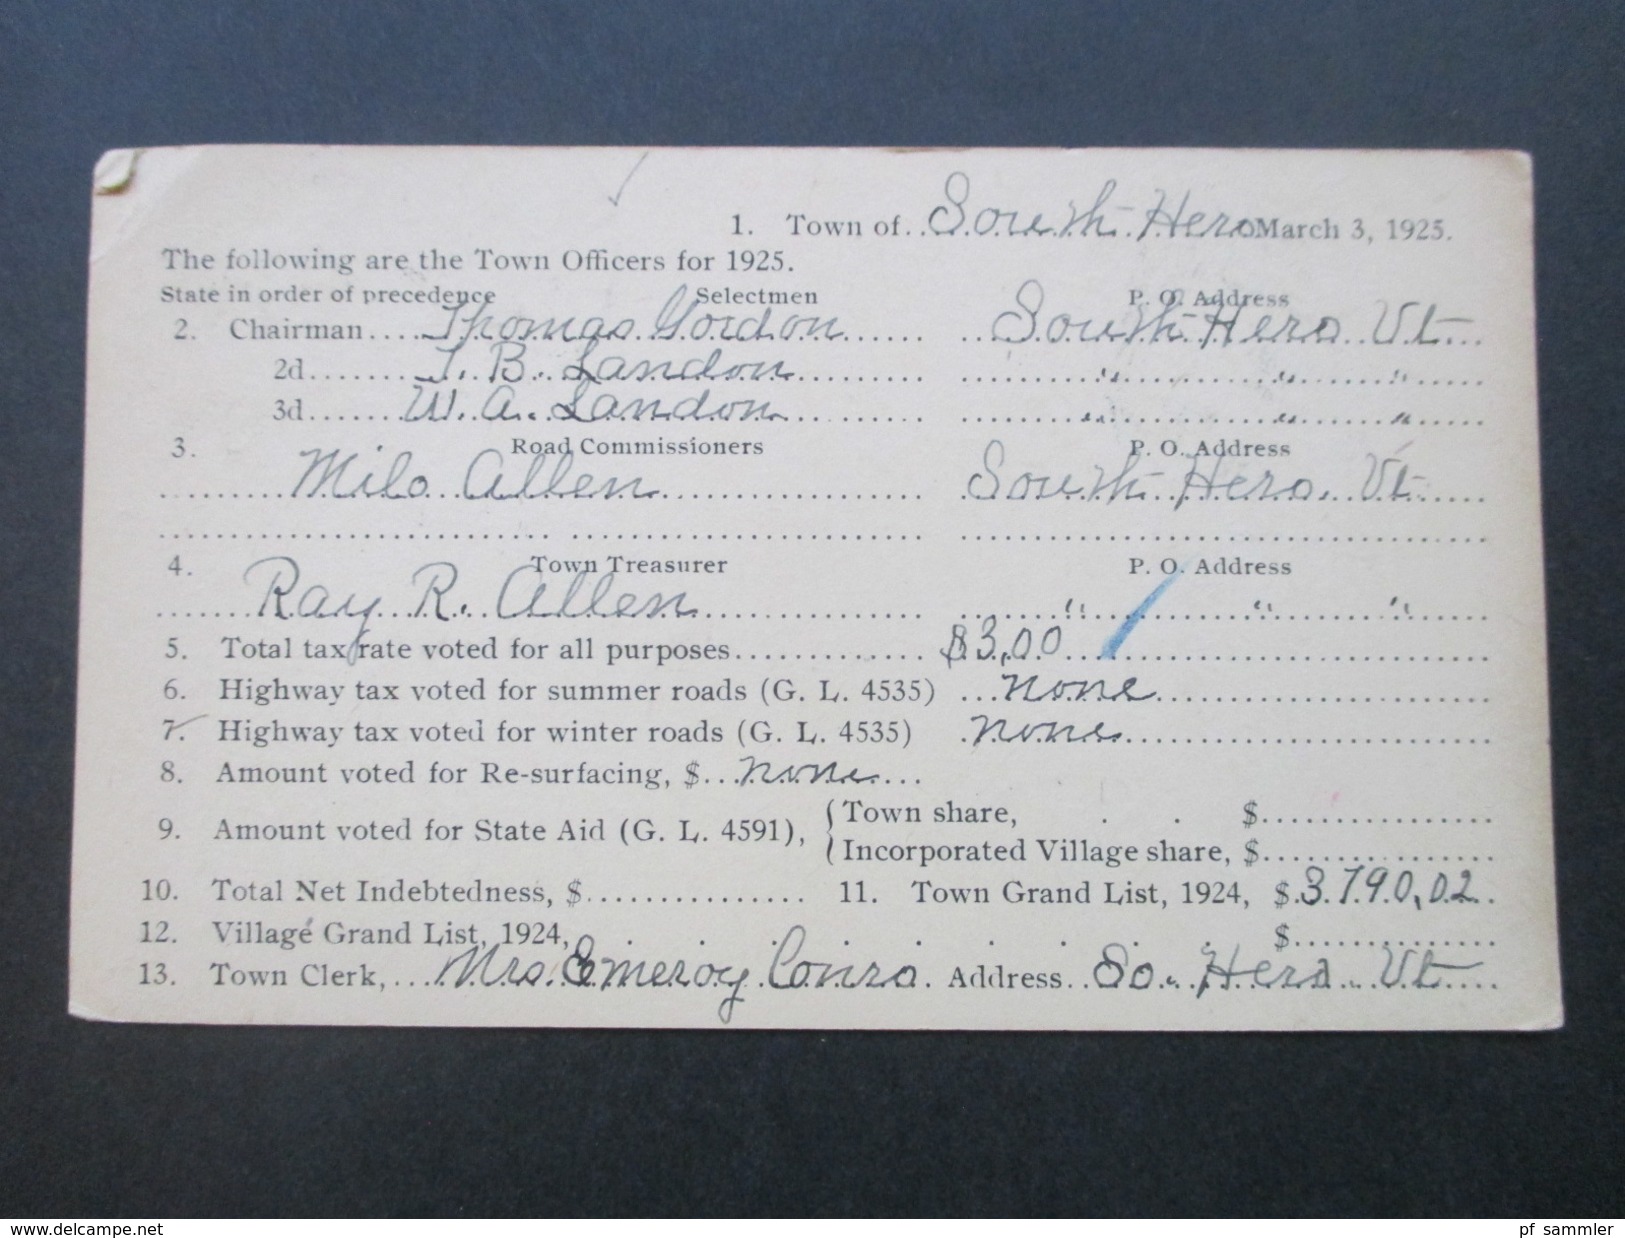 1. Town of South Hero March 3, 1925.
The following are the Town Officers for 1925.
State in order of precedence Selectmen P. O. Address
2. Chairman Thomas Gordon South Hero Vt
2d T. B. Landon " " "
3d W. A. Landon " " "
3. Road Commissioners P. O. Address
Milo Allen South Hero. Vt
4. Town Treasurer P. O. Address
Ray R. Allen " " "
5. Total tax rate voted for all purposes $3.00
6. Highway tax voted for summer roads (G. L. 4535) none
7. Highway tax voted for winter roads (G. L. 4535) none
8. Amount voted for Re-surfacing, $ none
9. Amount voted for State Aid (G. L. 4591), { Town share, $
Incorporated Village share, $
10. Total Net Indebtedness, $ 11. Town Grand List, 1924, $ 3790.02
12. Village Grand List, 1924, $
13. Town Clerk, Mrs. Emeroy Conro. Address So. Hero Vt
www.delcampe.net pf_sammler